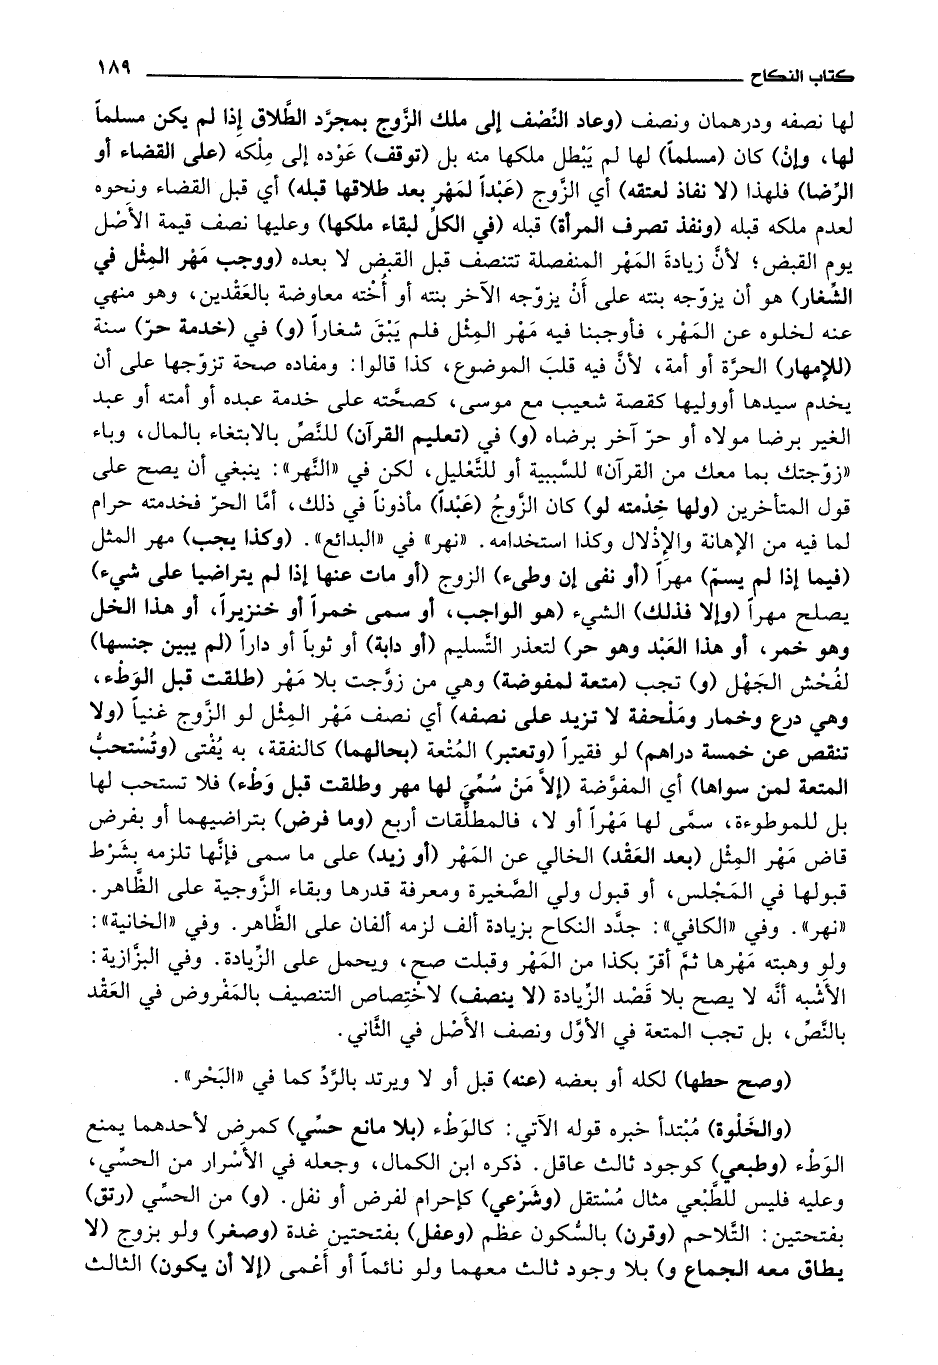 كتاب النكاح ١٨٩
لها نصفه ودرهمان ونصف (وعاد النِّصْف إلى ملك الزَّوج بمجرَّد الطَّلاق إِذا لم يكن مسلماً
لها، وإنْ) كان (مسلماً) لها لم يَبْطل ملكها منه بل (توقف) عَوْده إلى مِلْكه (على القضاء أو
الرِّضا) فلهذا (لا نفاذ لعتقه) أي الزَّوج (عَبْداً لمَهْرٍ بعد طلاقها قبله) أي قبل القضاء ونحوه
لعدم ملكه قبله (ونفذ تصرف المرأة) قبله (في الكلِّ لبقاء ملكها) وعليها نصف قيمة الأَصْل
يوم القبض؛ لأنَّ زيادةَ المَهْر المنفصلة تتنصف قبل القبض لا بعده (ووجب مَهْر المِثْل في
الشِّغار) هو أن يزوّجه بنته على أَنْ يزوّجه الآخر بنته أو أُخْته معاوضة بالعَقْدين، وهو منهي
عنه لخلوه عن المَهْر، فأوجبنا فيه مَهْر المِثْل فلم يَبْقَ شغاراً (و) في (خدمة حرّ) سنة
(للإمهار) الحرَّة أو أمة، لأنَّ فيه قلبَ الموضوع، كذا قالوا: ومفاده صحة تزوّجها على أن
يخدم سيدها أووليها كقصة شعيب مع موسى، كصحَّته على خدمة عبده أو أمته أو عبد
الغير برضا مولاه أو حرّ آخر برضاه (و) في (تعليم القرآن) للنَّصِّ بالابتغاء بالمال، وباء
«زوّجتك بما معك من القرآن» للسَّببية أو للتَّعْليل، لكن في «النَّهر»: ينبغي أن يصح على
قول المتأخرين (ولها خِدْمته لو) كان الزَّوجُ (عَبْداً) مأذوناً في ذلك، أمَّا الحرّ فخدمته حرام
لما فيه من الإهانة والإِذْلال وكذا استخدامه. «نهر» في «البدائع». (وكذا يجب) مهر المثل
(فيما إذا لم يسمّ) مهراً (أو نفى إن وطىء) الزوج (أو مات عنها إذا لم يتراضيا على شيء)
يصلح مهراً (وإلا فذلك) الشيء (هو الواجب، أو سمى خمراً أو خنزيراً، أو هذا الخل
وهو خمر، أو هذا العَبْد وهو حر) لتعذر التَّسليم (أو دابة) أو ثوباً أو داراً (لم يبين جنسها)
لفُحْش الجَهْل (و) تجب (متعة لمفوضة) وهي من زوَّجت بلا مَهْر (طلقت قبل الوَطْء،
وهي درع وخمار ومَلْحفة لا تزيد على نصفه) أي نصف مَهْر المِثْل لو الزَّوج غنياً (ولا
تنقص عن خمسة دراهم) لو فقيراً (وتعتبر) المُتْعة (بحالهما) كالنفقة، به يُفْتى (وتُسْتحبُّ
المتعة لمن سواها) أي المفوَّضة (إلاَّ مَنْ سُمِّيَ لها مهر وطلقت قبل وَطْء) فلا تستحب لها
بل للموطوءة، سمَّى لها مَهْراً أو لا، فالمطلَّقات أربع (وما فرض) بتراضيهما أو بفرض
قاض مَهْر المِثْل (بعد العَقْد) الخالي عن المَهْر (أو زيد) على ما سمى فإنَّها تلزمه بشَرْط
قبولها في المَجْلس، أو قبول ولي الصَّغيرة ومعرفة قدرها وبقاء الزَّوجية على الظَّاهر.
«نهر». وفي «الكافي»: جدَّد النكاح بزيادة ألف لزمه ألفان على الظاهر. وفي «الخانية»:
ولو وهبته مَهْرها ثمَّ أقرّ بكذا من المَهْر وقبلت صح، ويحمل على الزِّيادة. وفي البزَّازية:
الأشْبه أنَّه لا يصح بلا قَصْد الزِّيادة (لا ينصف) لاخْتِصاص التنصيف بالمَفْروض في العَقْد
بالنَّصِّ، بل تجب المتعة في الأوَّل ونصف الأَصْل في الثَّاني.
(وصح حطها) لكله أو بعضه (عنه) قبل أو لا ويرتد بالرَّدِّ كما في «البَحْر».
(والخَلْوة) مُبْتدأ خبره قوله الآتي: كالوَطْء (بلا مانع حسِّي) كمرض لأحدهما يمنع
الوَطْء (وطبعي) كوجود ثالث عاقل. ذكره ابن الكمال، وجعله في الأسْرار من الحسِّي،
وعليه فليس للطَّبْعي مثال مُسْتقل (وشَرْعي) كإحرام لفرض أو نفل. (و) من الحسِّي (رتق)
بفتحتين: التَّلاحم (وقرن) بالسُّكون عظم (وعفل) بفتحتين غدة (وصغر) ولو بزوج (لا
يطاق معه الجماع و) بلا وجود ثالث معهما ولو نائماً أو أعْمى (إلا أن يكون) الثالث